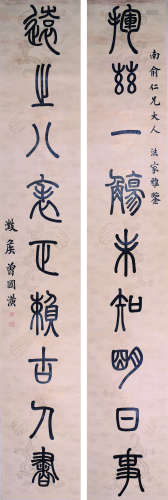 南俞仁兄大人 法家雅鑒
揮茲一觴未知明日事
遠之八表正賴古人書
侯曾國潢